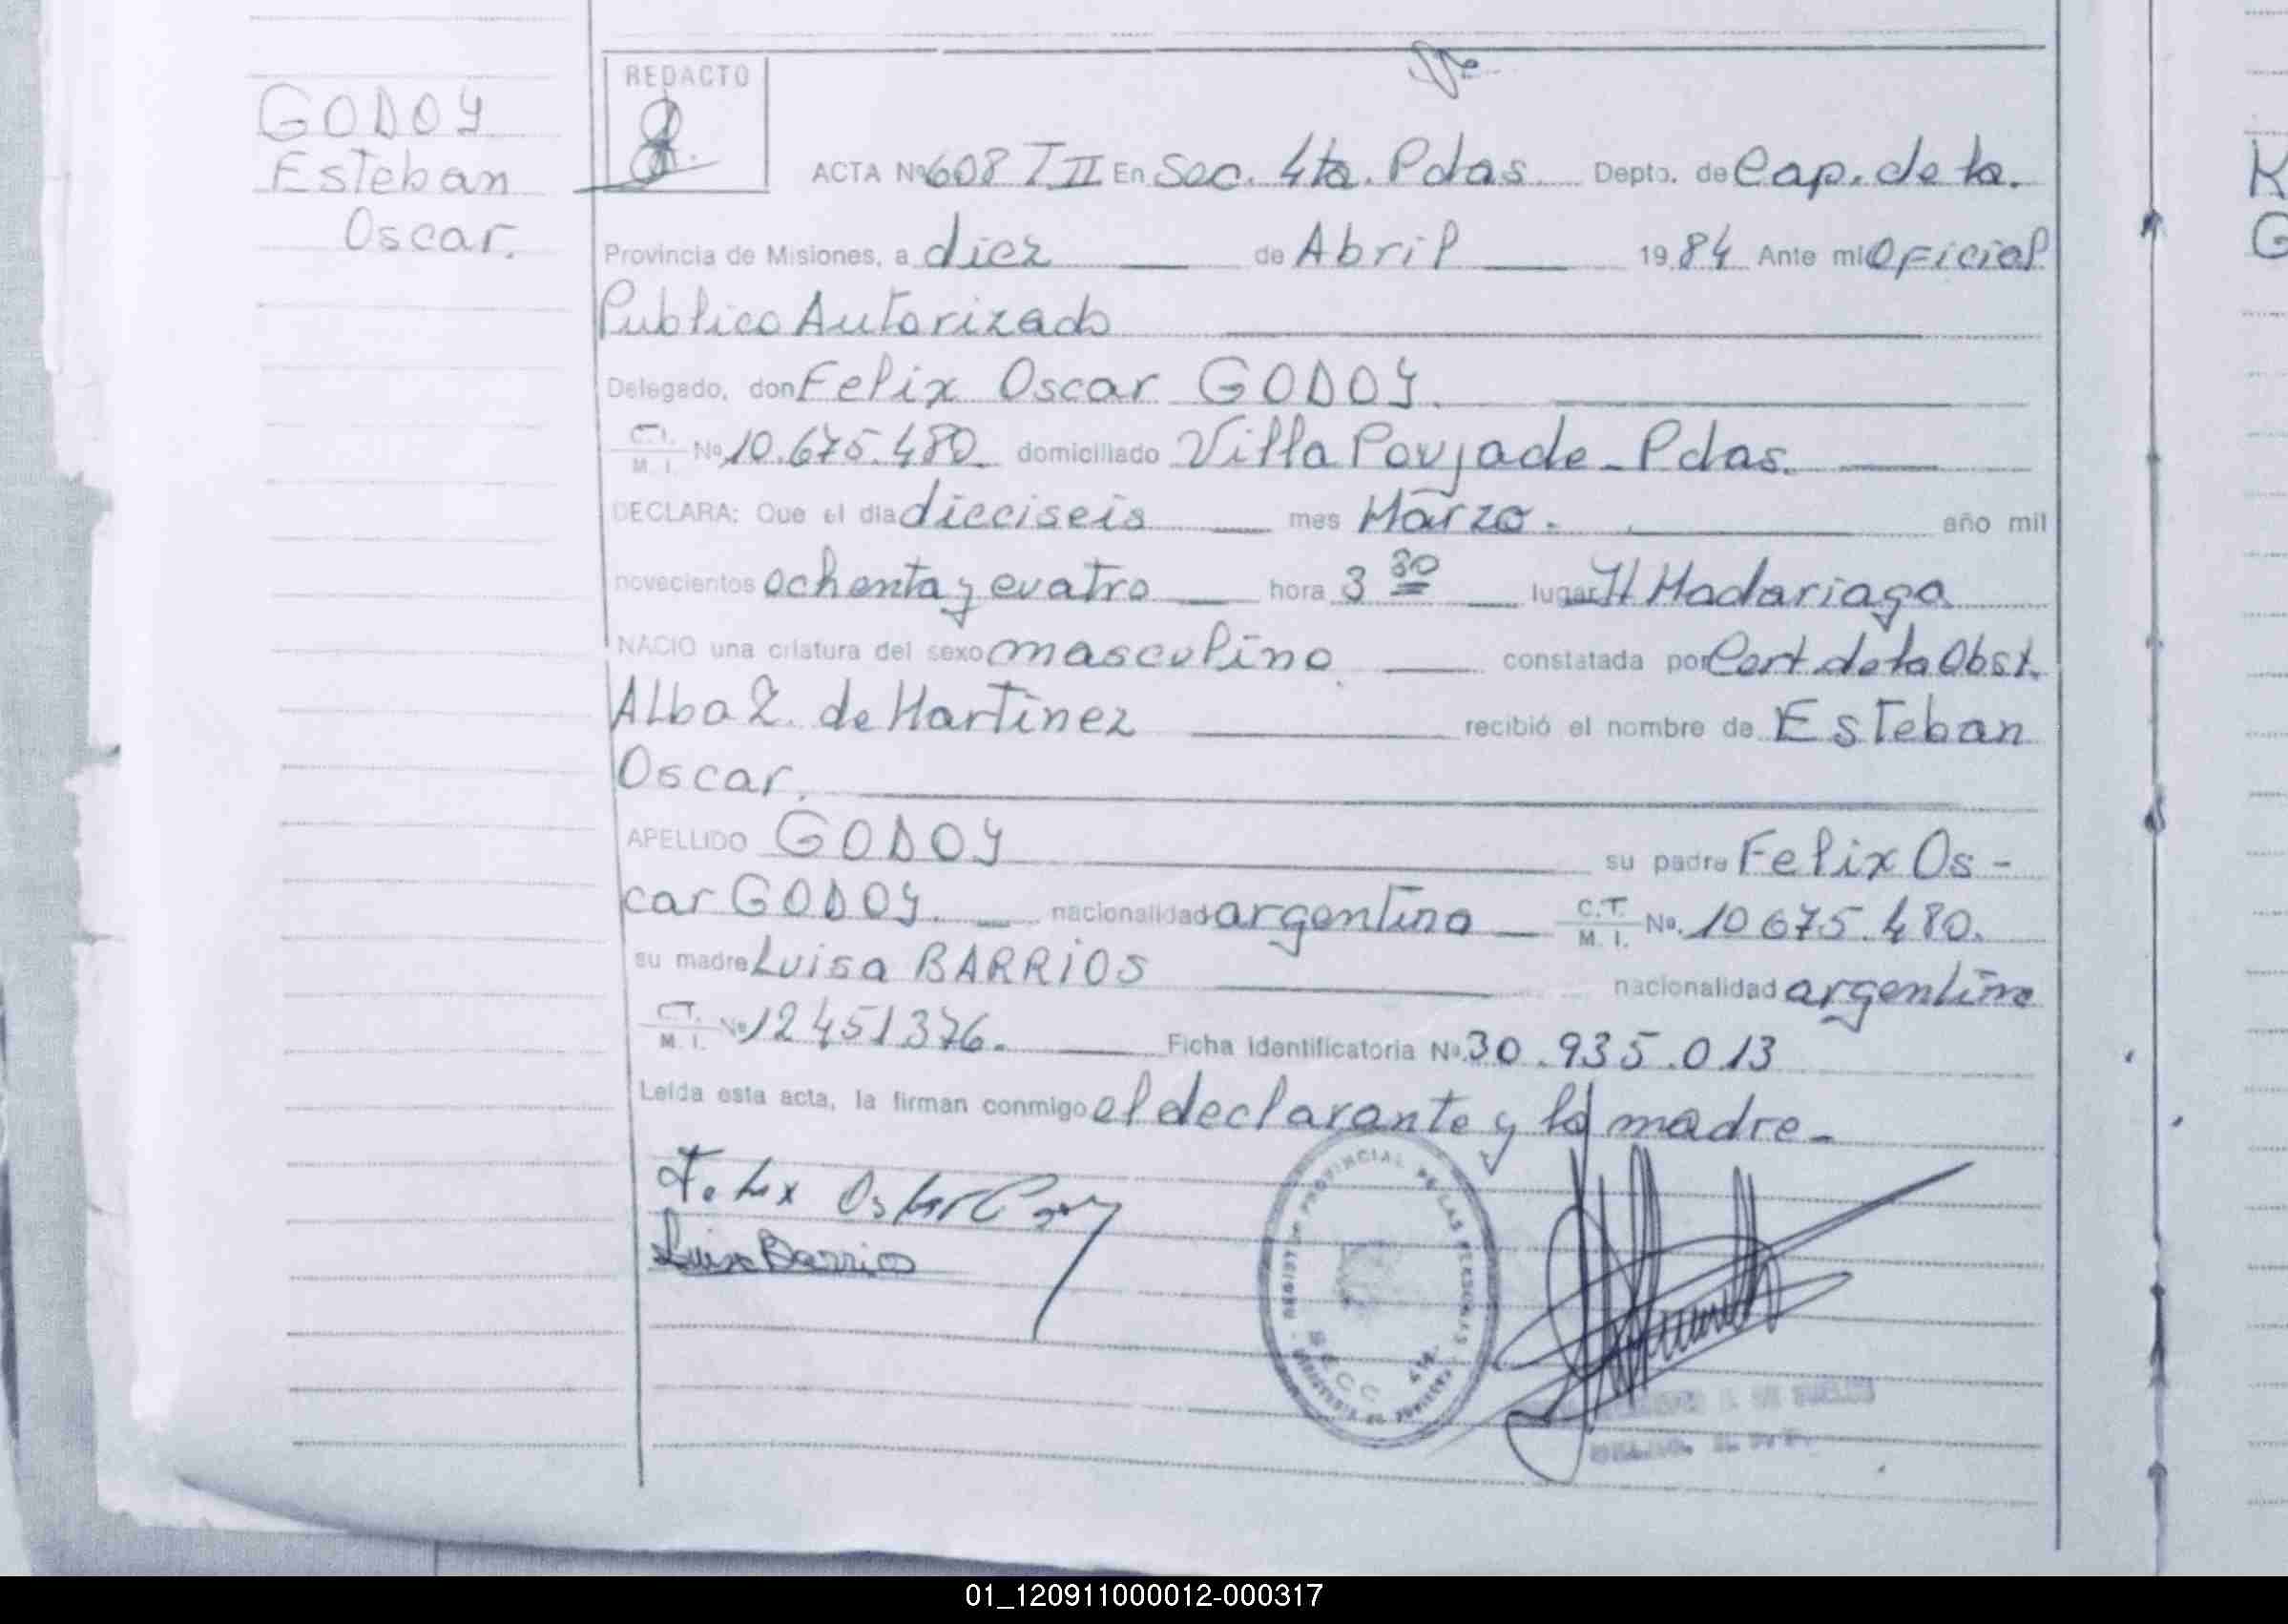 GODOY
Esteban
Oscar.
REDACTO
ACTA Nº 608 T II En Sec. 4ta. Pdas. Depto. de Cap. de la.
Provincia de Misiones, a diez de Abril 1984 Ante mi Oficial
Publico Autorizado
Delegado, don Felix Oscar GODOY.
C.I. M. I. Nº 10.675.480. domiciliado Villa Poujade - Pdas.
DECLARA: Que el dia dieciseis mes Marzo. año mil
novecientos ochenta y cuatro hora 3 30 lugar H Madariaga
NACIO una criatura del sexo masculino constatada por Cert. de la Obst.
Alba Z. de Martinez recibió el nombre de Esteban
Oscar.
APELLIDO GODOY su padre Felix Os-
car GODOY. nacionalidad argentina C.I. M. I. Nº. 10 675.480.
su madre Luisa BARRIOS nacionalidad argentina
C.I. M. I. Nº 12451376. Ficha Identificatoria Nº. 30.935.013
Leída esta acta, la firman conmigo el declarante y la madre-
Felix Oscar Godoy
Luisa Barrios
REGISTRO PROVINCIAL DE LAS PERSONAS
SECC. 4ta.
01_120911000012-000317
K
G